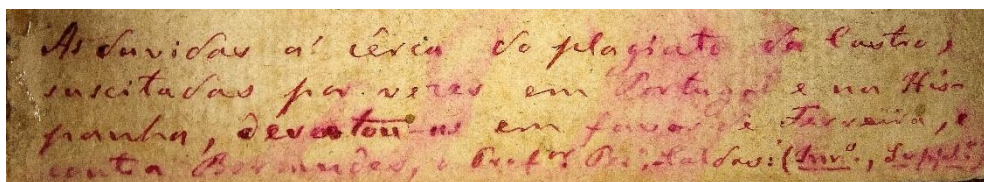 As duvidas a' cêrca do plagiato da Castro,
suscitadas por vezes em Portugal e na His-
panha, em favor de Ferreira, e
contra Bermudes, o Prof.or Per.a Caldas: (Inv.o, Suppl.o)